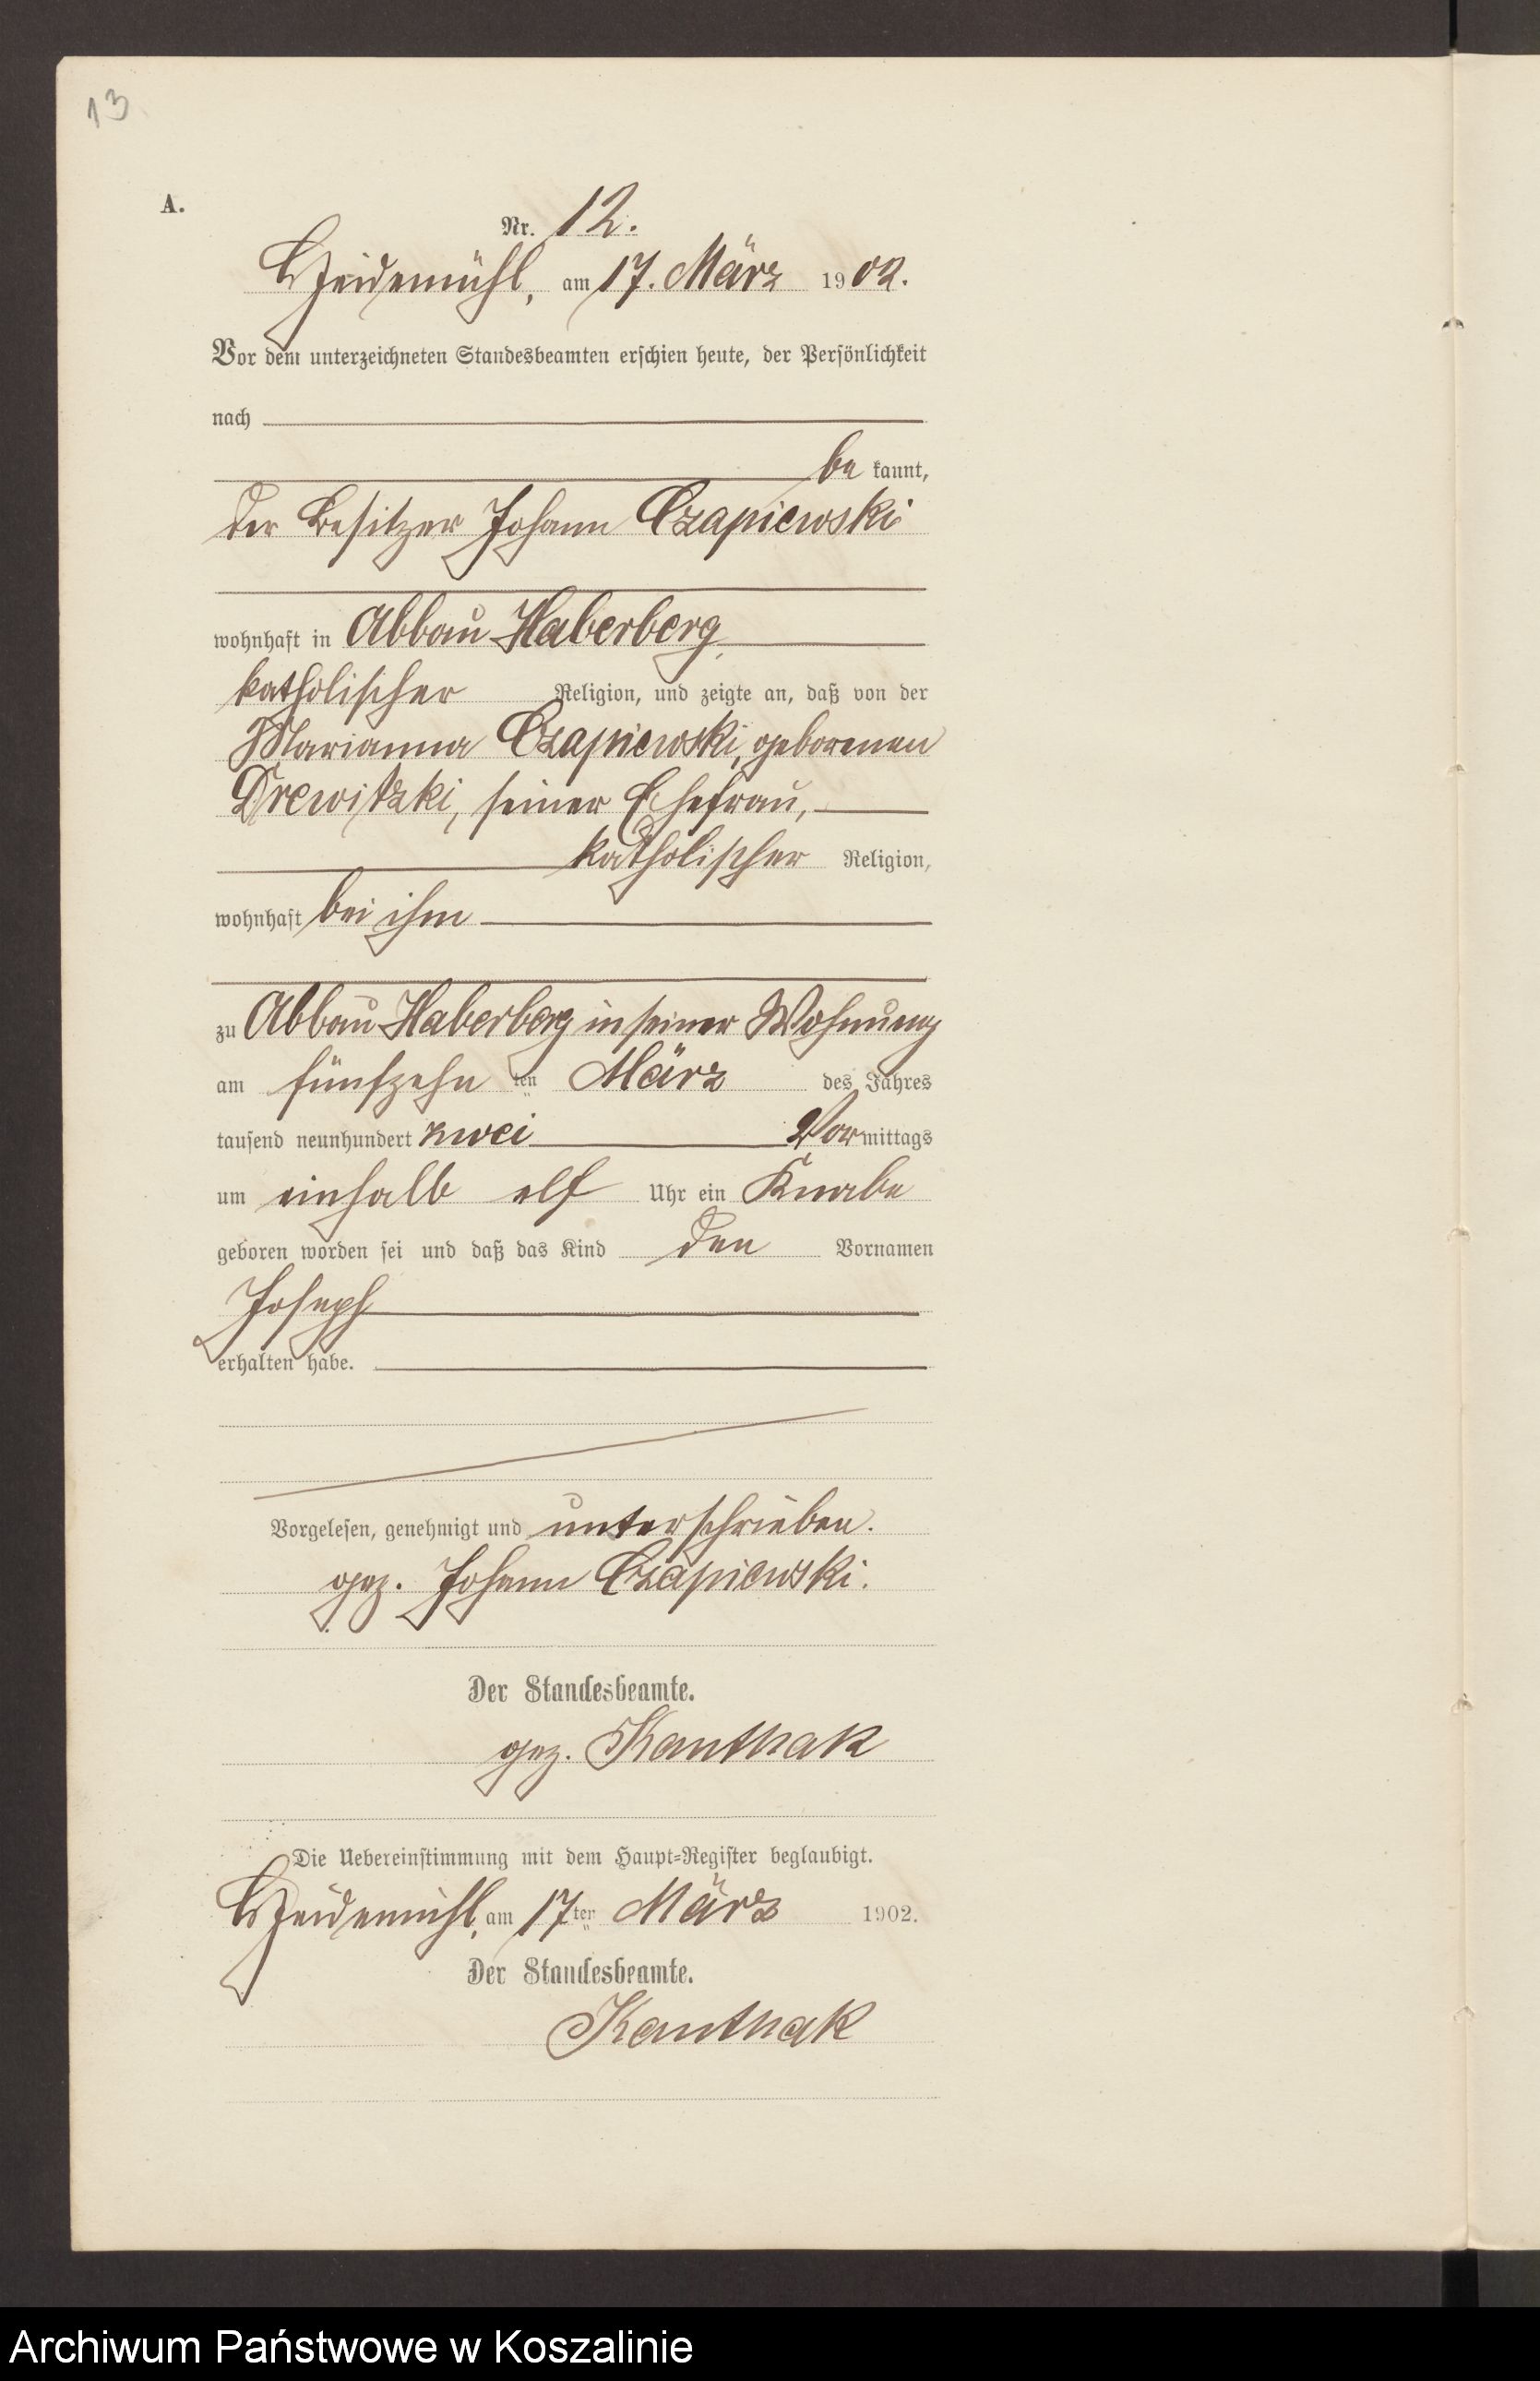 13
A.
Nr. 12.
Heidemühl, am 17. März 1902.
Vor dem unterzeichneten Standesbeamten erschien heute, der Persönlichkeit
nach
be kannt,
der Besitzer Johann Czapiewski
wohnhaft in Abbau Haberberg
katholischer Religion, und zeigte an, daß von der
Marianna Czapiewski, geborenen
Drewitzki, seiner Ehefrau,
katholischer Religion,
wohnhaft bei ihm
zu Abbau Haberberg in seiner Wohnung
am fünfzehn ten März des Jahres
tausend neunhundert zwei Vormittags
um einhalb elf Uhr ein Knabe
geboren worden sei und daß das Kind den Vornamen
Joseph
erhalten habe.
Vorgelesen, genehmigt und unterschrieben.
gez. Johann Czapiewski.
Der Standesbeamte.
gez. Kanthak
Die Uebereinstimmung mit dem Haupt=Register beglaubigt.
Heidemühl, am 17ten März 1902.
Der Standesbeamte.
Kanthak
Archiwum Państwowe w Koszalinie